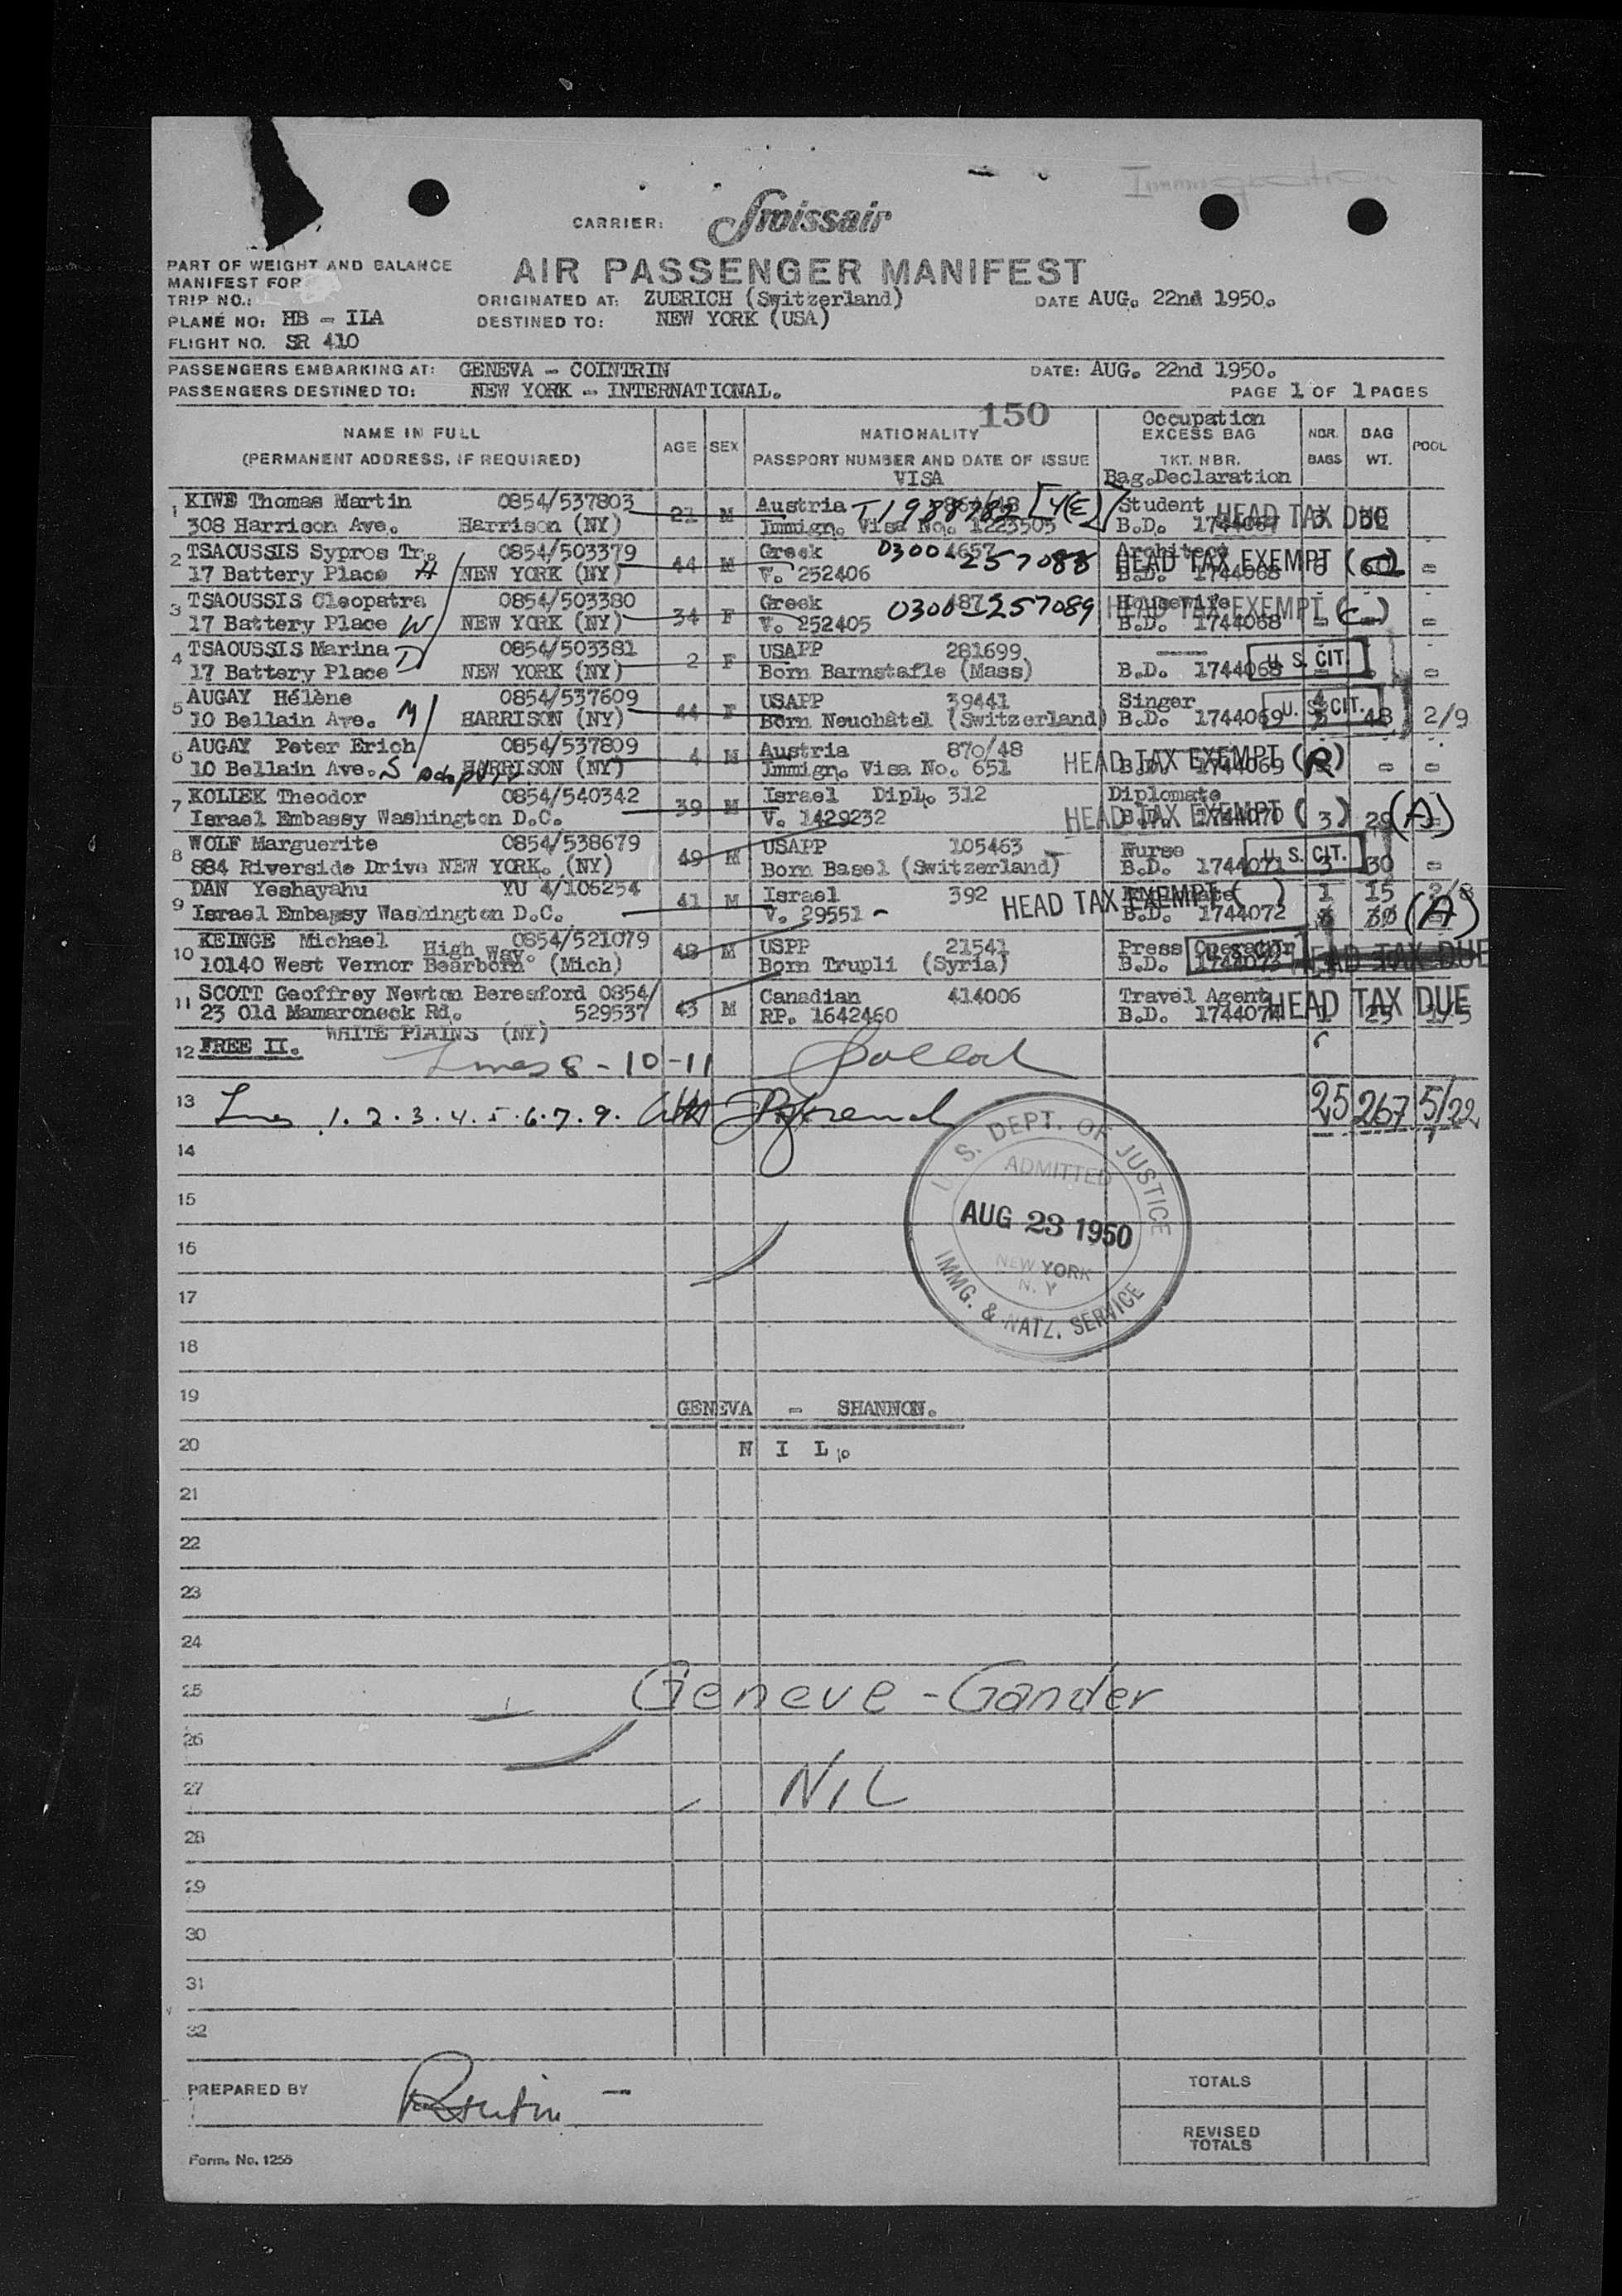 Immigration
CARRIER: Swissair
PART OF WEIGHT AND BALANCE
MANIFEST FOR
AIR PASSENGER MANIFEST
TRIP NO.:
ORIGINATED AT: ZUERICH (Switzerland) DATE AUG. 22nd 1950.
PLANE NO: HB - IIA DESTINED TO: NEW YORK (USA)
FLIGHT NO. SR 410
PASSENGERS EMBARKING AT: GENEVA - COINTRIN DATE: AUG. 22nd 1950.
PASSENGERS DESTINED TO: NEW YORK - INTERNATIONAL. PAGE 1 OF 1 PAGES
150
NAME IN FULL AGE SEX NATIONALITY Occupation EXCESS BAG NBR. BAG POOL
(PERMANENT ADDRESS, IF REQUIRED) PASSPORT NUMBER AND DATE OF ISSUE TKT. NBR. BAGS WT.
VISA Bag.Declaration
1 KIWE Thomas Martin 0854/537803 21 M Austria T1988782 [4(E)] Student HEAD TAX DUE
308 Harrison Ave. Harrison (NY) Immign. Visa No. 1223505 B.D.
2 TSAOUSSIS Sypros Tr. 0854/503379 44 M Greek 0300 4657 257088 Architect HEAD TAX EXEMPT
17 Battery Place H NEW YORK (NY) V. 252406 B.D. 1744068
3 TSAOUSSIS Cleopatra 0854/503380 34 F Greek 0300 257089 Housewife HEAD TAX EXEMPT (C)
17 Battery Place W NEW YORK (NY) V. 252405 B.D. 1744068
4 TSAOUSSIS Marina D 0854/503381 2 F USAPP 281699
17 Battery Place NEW YORK (NY) Born Barnstafle (Mass) B.D. 1744068 U. S. CIT.
5 AUGAY Hélène 0854/537609 44 F USAPP 39441 Singer U. S. CIT. 4
10 Bellain Ave. M HARRISON (NY) Born Neuchâtel (Switzerland) B.D. 1744069 48 2/9
6 AUGAY Peter Erich 0854/537809 4 M Austria 870/48 HEAD TAX EXEMPT (R)
10 Bellain Ave. S adoptive HARRISON (NY) Immign. Visa No. 651 B.D. 1744069
7 KOLLEK Theodor 0854/540342 39 M Israel Dipl. 312 Diplomate
Israel Embassy Washington D.C. V. 1429232 HEAD TAX EXEMPT B.D. 1744070 (3) 29 (A)
8 WOLF Marguerite 0854/538679 49 M USAPP 105463 Nurse U. S. CIT.
884 Riverside Drive NEW YORK. (NY) Born Basel (Switzerland) B.D. 1744071 3 30
9 DAN Yeshayahu YU 4/106254 41 M Israel 392 HEAD TAX EXEMPT ( ) 1 15
Israel Embassy Washington D.C. V. 29551 B.D. 1744072 (A)
10 KEINGE Michael 0854/521079 48 M USPP 21541 Press Operator
High Way.
10140 West Vernor Bearborn (Mich) Born Trupli (Syria) B.D. 1744073 HEAD TAX DUE
11 SCOTT Geoffrey Newton Beresford 0854/ 43 M Canadian 414006 Travel Agent HEAD TAX DUE
23 Old Mamaroneck Rd. 529537 RP. 1642460 B.D. 1744074
WHITE PLAINS (NY)
12 FREE II. Lines 8 - 10 - 11
13 Lines 1. 2. 3. 4. 5. 6. 7. 9. 25 267 5/22
14
U. S. DEPT. OF JUSTICE
ADMITTED
15
AUG 23 1950
16
NEW YORK
N. Y
IMMG. & NATZ. SERVICE
17
18
19 GENEVA - SHANNON.
20 N I L.
21
22
23
24
25 Geneve - Gander
26
27 NIL
28
29
30
31
32
PREPARED BY TOTALS
REVISED
TOTALS
Form. No. 1255